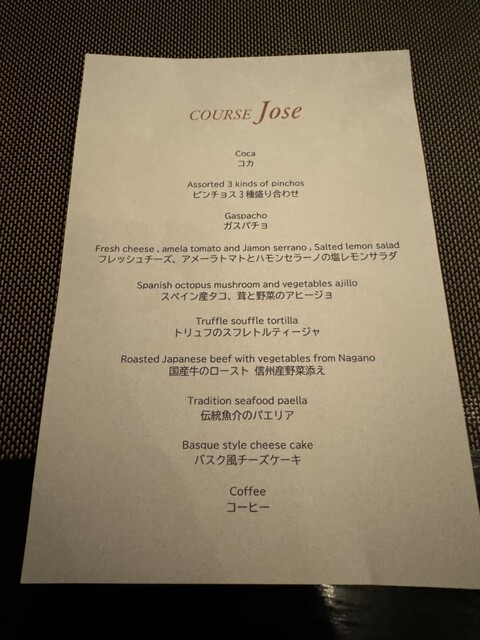 COURSE Jose
Coca
コカ
Assorted 3 kinds of pinchos
ピンチョス3種盛り合わせ
Gaspacho
ガスパチョ
Fresh cheese , amela tomato and Jamon serrano , Salted lemon salad
フレッシュチーズ、アメーラトマトとハモンセラーノの塩レモンサラダ
Spanish octopus mushroom and vegetables ajillo
スペイン産タコ、茸と野菜のアヒージョ
Truffle souffle tortilla
トリュフのスフレトルティージャ
Roasted Japanese beef with vegetables from Nagano
国産牛のロースト 信州産野菜添え
Tradition seafood paella
伝統魚介のパエリア
Basque style cheese cake
バスク風チーズケーキ
Coffee
コーヒー